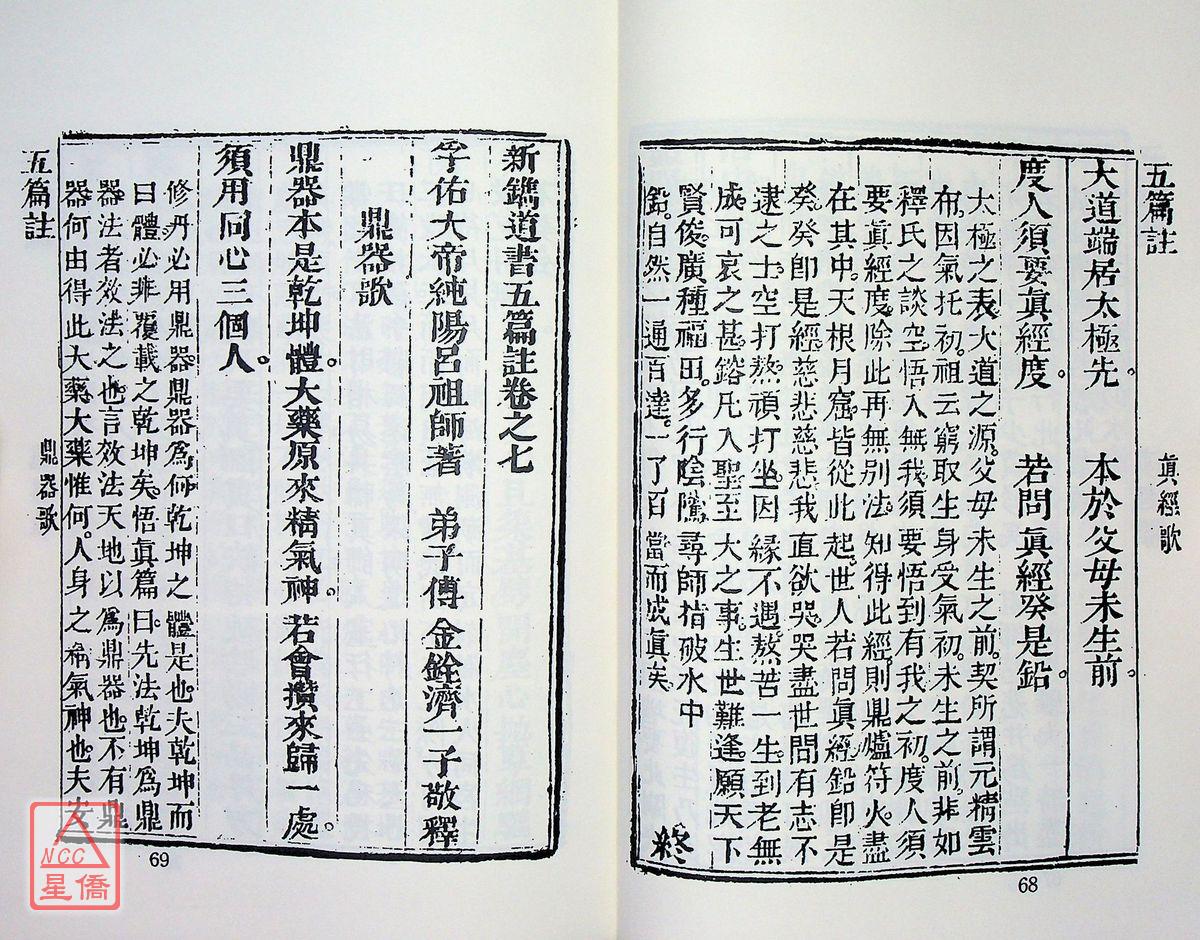 五篇註
眞經歌
大道端居太極先。 本於父母未生前。
度人須要眞經度。 若問眞經癸是鉛。
太極之表。大道之源。父母未生之前。契所謂元精雲
布。因氣托初。祖云窮取生身受氣初。未生之前。非如
釋氏之談空悟入無我。須要悟到有我之初。度人須
要眞經度。除此再無別法。知得此經。則鼎爐符火。盡
在其中。天根月窟。皆從此起。世人若問眞經鉛卽是
癸。癸卽是經。慈悲慈悲。我直欲哭。哭盡世間有志不
逮之士。空打熬。頑打坐。因緣不遇。熬苦一生。到老無
成。可哀之甚。鎔凡入聖。至大之事。生世難逢。願天下
賢俊。廣種福田。多行陰隲。尋師指破水中
鉛。自然一通百達。一了百當而成眞矣 終
68
新鐫道書五篇註卷之七
孚佑大帝純陽呂祖師著 弟子傅 金銓濟一子敬釋
鼎器歌
鼎器本是乾坤體。大藥原來精氣神。若會攢來歸一處。
須用同心三個人。
修丹必用鼎器。鼎器爲何。乾坤之體是也。夫乾坤而
曰體。必非覆載之乾坤矣。悟眞篇曰。先法乾坤爲鼎
器。法者效法之也。言效法天地以爲鼎器也。不有鼎
器。何由得此大藥。大藥惟何。人身之精氣神也。夫
五篇註
鼎器歌
69
NCC
星僑